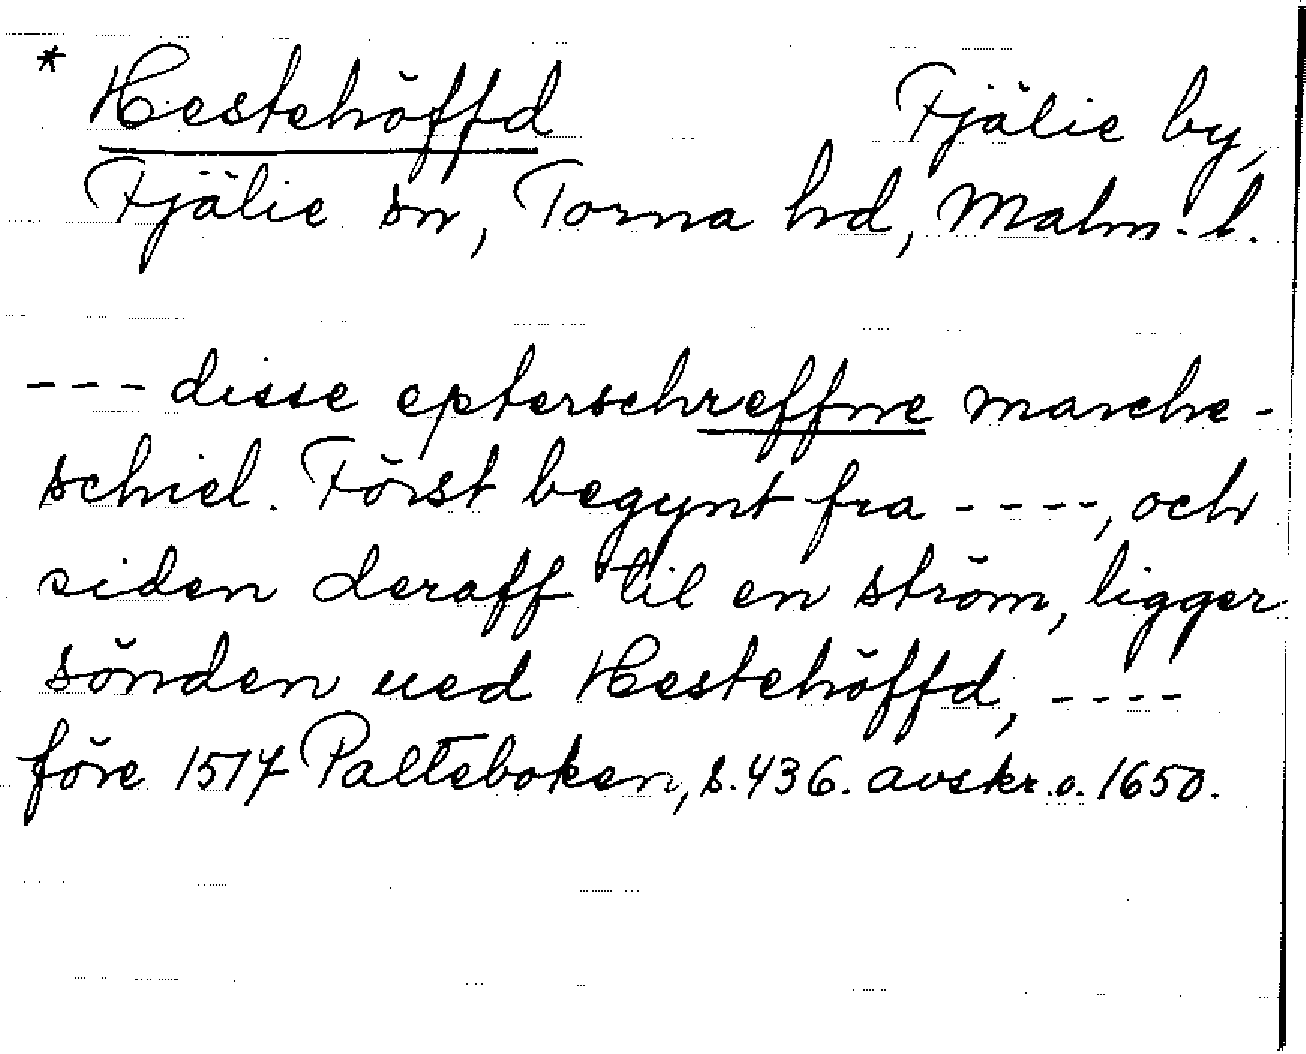 * Hestehöffd Fjälie by,
Fjälie sn, Torna hd, Malm. l.
--- disse epterschreffne marche-
schiel. Först begynt fra ----, och
siden deraff til en ström, ligger
sönden ued Hestehöffd, ----
före 1517 Palteboken, s. 436. avskr. o. 1650.